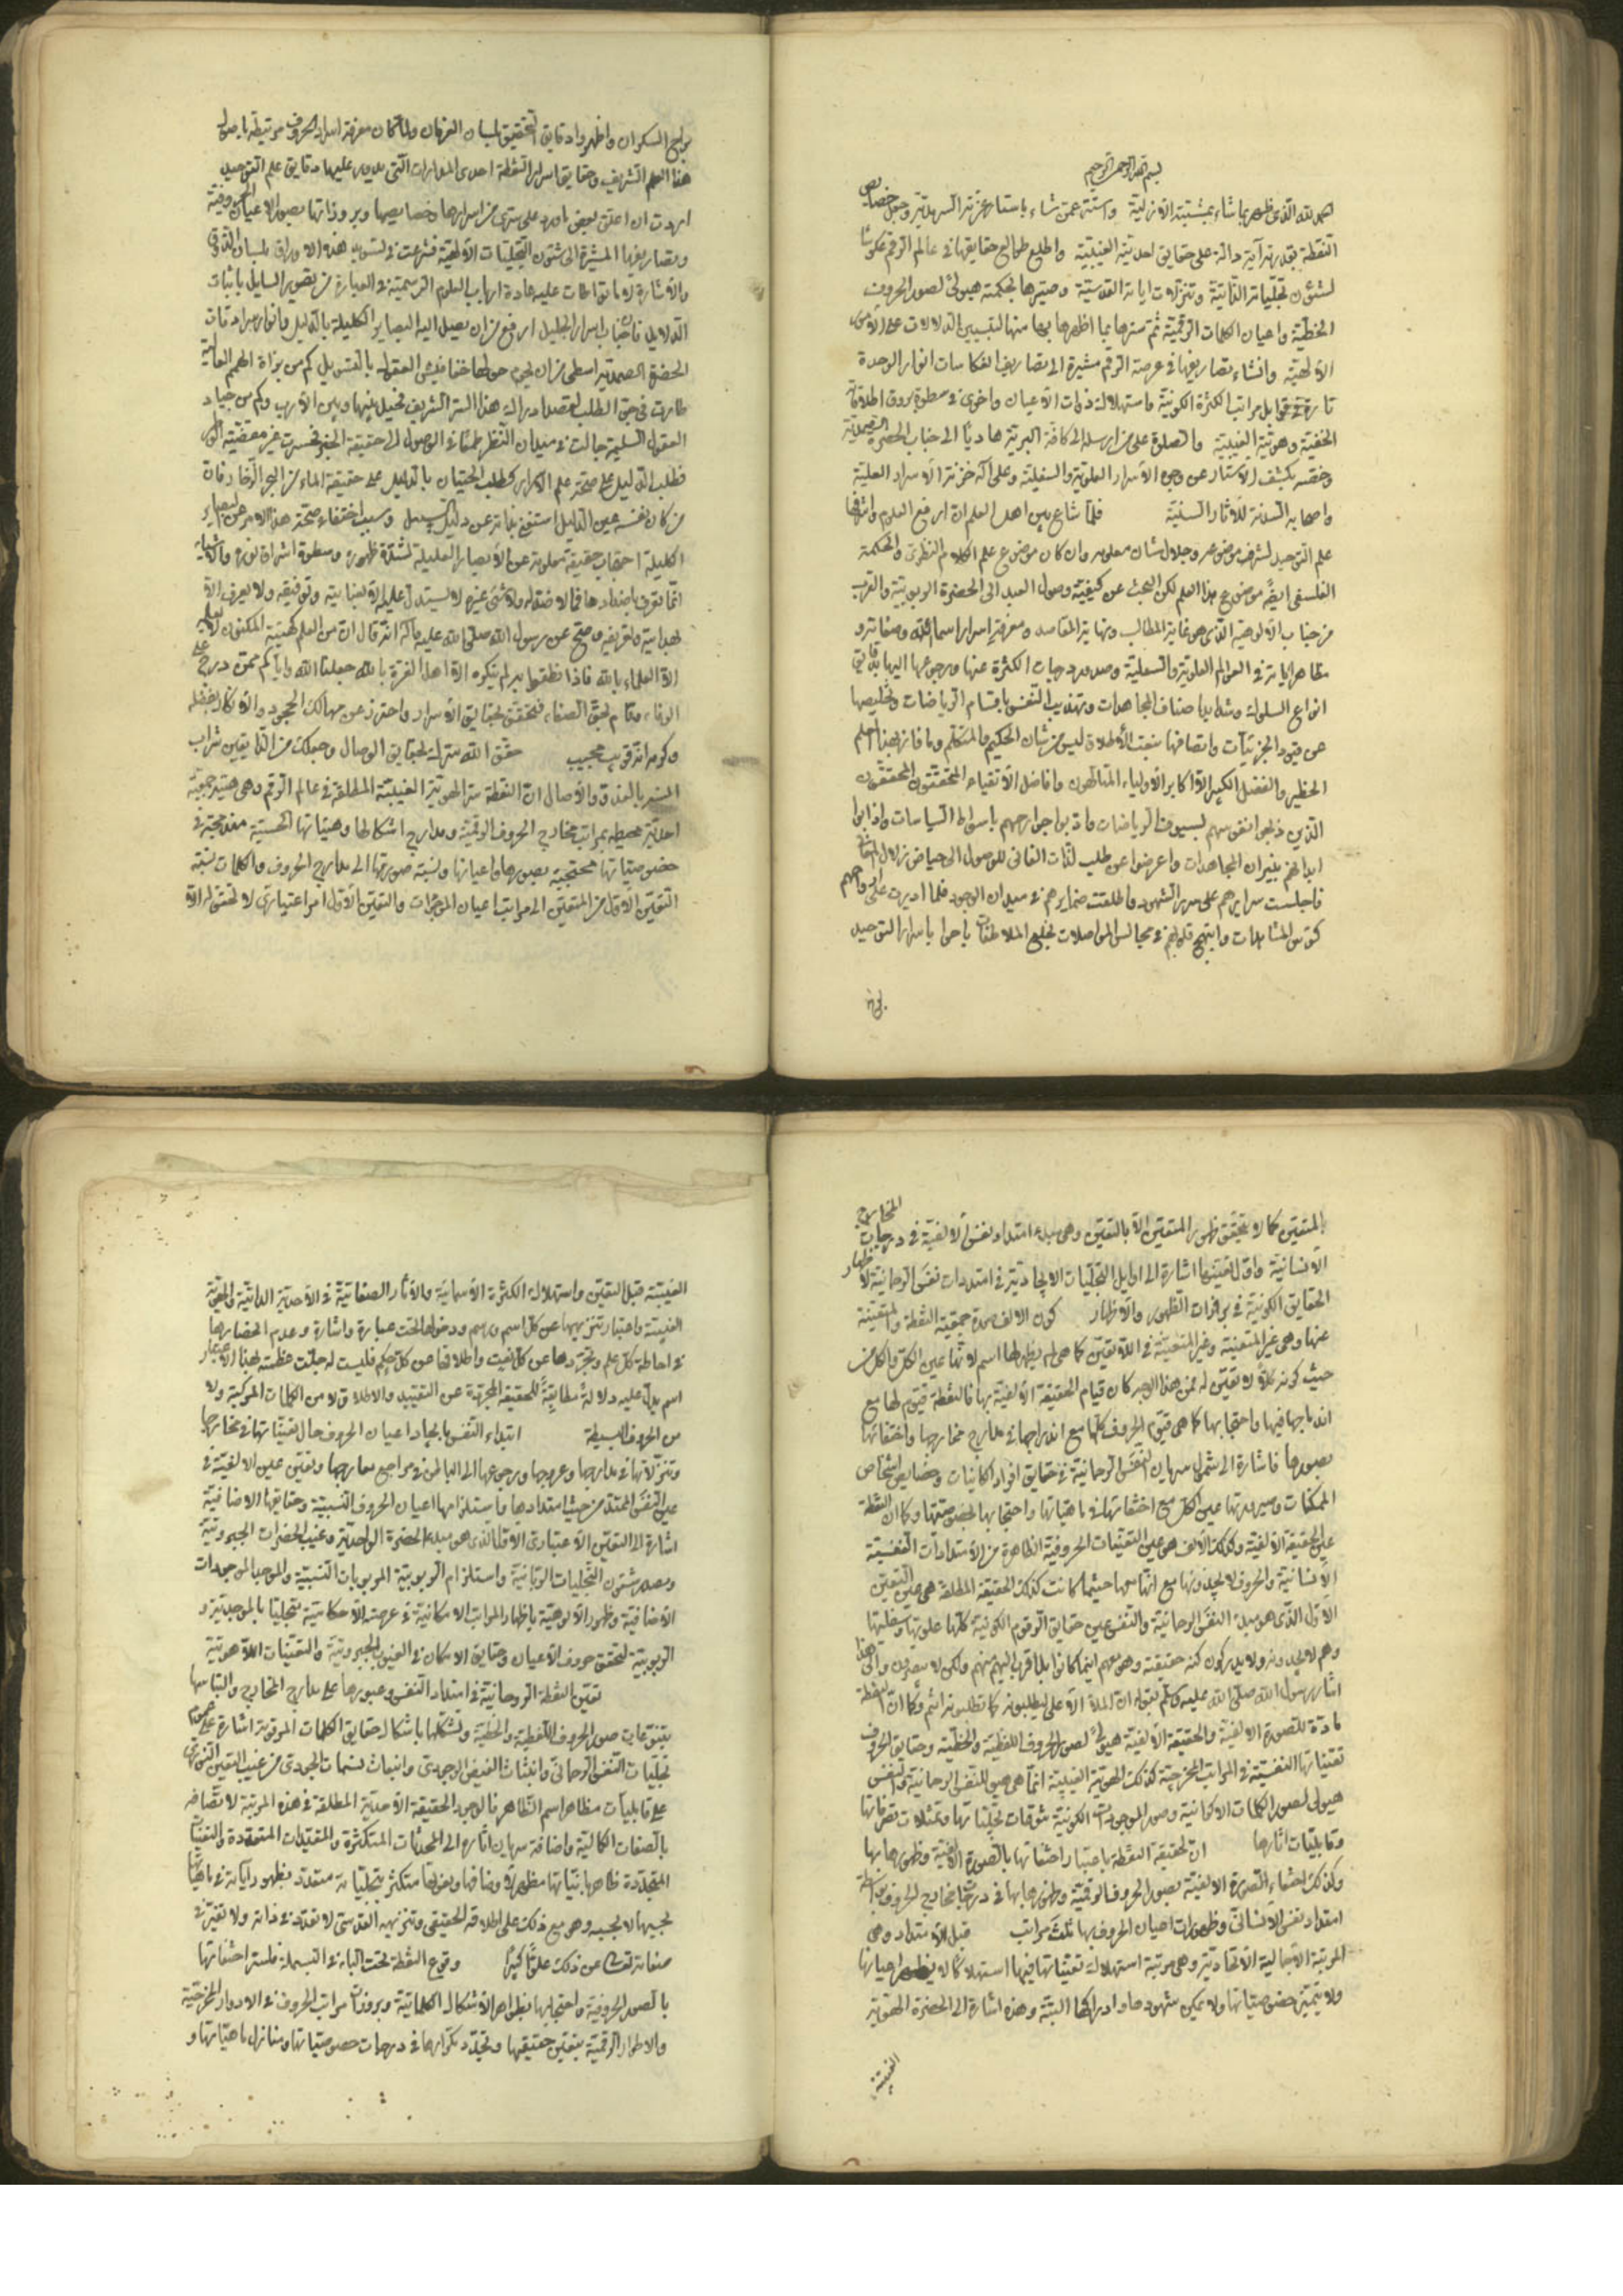 بسم الله الرحمن الرحيم
الحمد لله الذى ظهر بما شاء بمشيته الازلية واستتر عمن شاء باستار عزته السرمدية وجعل خصايص
النقطة بقدرته آية دالة على حقايق احديته الغيبية واطلع طوالع حقايقها فى عالم الرقم عكوسًا
لشئون تجلياته الذاتية وتنزلات اياته القدسية وصيرها بحكمته هيولى لصور الحروف
الخطية واعيان الكلمات الرقمية ثم سترها بما اظهرها بها منها لتبيين الدلالات على الاسرار
الالهية وانشاء تصاريفها فى عرصة الرقم مشيرة الى تصاريف انعكاسات انوار الوحدة
تارة فى قوابل مراتب الكثرة الكونية واستهلاك ذوات الاعيان واخرى فى سطوة بروق اطلاقاته
الخفية وهويته الغيبية والصلوة على من ارسله الى كافة البرية هاديًا الى جناب الحضرة الصمدية
وخصه بكشف الاستار عن وجوه الاسرار العلوية والسفلية وعلى آله خزنة الاسرار العلية
واصحابه السدنة للآثار السنية فلما شاع بين اهل العلم ان ارفع العلوم واشرفها
علم التوحيد لشرف موضوعه وجلال شان معلومه وان كان موضوع علم الكلام النظرى والحكمة
الفلسفى ايضًا موضوع هذا العلم لكن البحث عن كيفية وصول العبد الى الحضرة الربوبية والقرب
من جناب الالوهية الذى هو غاية المطالب ونهاية المقاصد ومعرفة اسرار اسماء الله وصفاته و
مظاهر اياته فى العوالم العلوية والسفلية وصدور درجات الكثرة عنها ورجوعها اليها بدقايق
انواع السلوك وشدايد اصناف المجاهدات وتهذيب النفس باقسام الرياضات وتخليصها
عن قيود الجزئيات واتصافها بنعت الاطلاق ليس من شان الحكيم والمتكلم وما فاز بهذا العلم
الخطير والفضل الكبير الا اكابر الاولياء المتالهون وافاضل الاتقياء المحققون المحققون
الذين ذبحوا انفوسهم بسيوف الرياضات وادبوا جوارحهم باسواط السياسات واذابوا
ابدانهم بنيران المجاهدات واعرضوا عن طلب لذات الفانى للوصول الى حياض زلال اللقاء
فاجلست سرايرهم على سرر الشهود واطلقت ضمايرهم فى ميدان الوجود فلما اديرت على ارواحهم
كئوس المشاهدات وابتهج قلوبهم فى مجالس المواصلات بخلع الملاطفات باحوا باسرار التوحيد
بوح السكران واظهروا دقايق التحقيق بلسان العرفان ولما كان معرفة اسرار الحروف مرتبطة باصول
هذا العلم الشريف وحقايق اسرار النقطة احدى المدارات التى يدور عليها دقايق علم التوحيد
اردت ان اعلق بعض ما ورد على سرى من اسرارها وخصايصها وبروزاتها بصور الاعيان الحروفية
وتصاريفها المشيرة الى شئون التجليات الالهية فشرعت فى تسويد هذه الاوراق بلسان الذوق
والاشارة لا ما تواطات عليه عادة ارباب العلوم الرسمية فى العبارة من تصوير المسايل باثبات
الدلايل فان جناب اسرار الجليل ارفع من ان يصل اليه البصاير الكليلة بالدليل وانوار سرادقات
الحضرة الصمدية اسطى من ان يحوم حولها خفافيش العقول بالتسويل كم من بزاة الهمم العالية
طارت فى جو الطلب لقصد ادراك هذا السر الشريف فحيل بينها وبين الارب وكم من جياد
العقول السليمة جالت فى ميدان النظر طمعًا فى الوصول الى حقيقة الخبر فخسرت غير مقضية الوطر
فطلب الدليل على صحة علم الاسرار كطلب الحيتان بالدليل على حقيقة الماء من البحر الزخار فان
من كان نفسه عين الدليل استغنى بذاته عن دليل السبيل وسبب اختفاء صحة هذا الامر عن البصاير
الكليلة احتجاب حقيقة معلومه عن الابصار العليلة لشدة ظهوره وسطوة اشراق نوره والاشياء
انما تعرف باضدادها فما لا ضد له ولا شئ غيره لا يستدل عليه الا بعنايته وتوفيقه ولا يعرف الا
بهدايته وتعريفه وصح عن رسول الله صلى الله عليه وآله انه قال ان من العلم كهيئة المكنون لا يعلمه
الا العلماء بالله فاذا نطقوا به لم ينكره الا اهل الغرة بالله جعلنا الله واياكم ممن درج على
الوفاء وقام بحق الصفاء فتحقق بحقايق الاسرار واحترز عن مهالك الجحود والانكار بفضله
وكرمه انه قريب مجيب حقق الله سرك بحقايق الوصال وجعلك من الذايقين شراب
السر بالغدو والآصال ان النقطة سر الهوية الغيبية المطلقة فى عالم الرقم وهى هيئة جمعية
احدية محيطة بمراتب مخارج الحروف الرقمية ومدارج اشكالها وهيئاتها الحسية مندمجة فى
خصوصياتها محتجبة بصورها واعيانها ونسبة صورتها الى مدارج الحروف والكلمات نسبة
التعين الاول من المتعين الى مراتب اعيان الموجودات والتعين الاول امر اعتبارى لا تحقق له الا
بالمتعين كما لا تحقق لظهور المتعين الا بالتعين وهى مبدء امتداد نفس الالفية فى درجات المخارج
الانسانية واول تعينها اشارة الى اوايل التجليات الايجادية فى امتدادات نفس الرحمانية لاظهار
الحقايق الكونية فى بوارزات الظهور والاظهار كون الالف صورة جمعية النقطة ومتعينة
عنها وهى غير المتعينة وغير المتعينة فى اللاتعين كما هى لم يظهر لها اسم لانها عين الكل والكل من
حيث كونه كلًا لا تعين له فمن هذا الوجه كان قيام الحقيقة الالفية بها فالنقطة قيوم لها مع
اندماجها فيها واحتجابها كما هى قيوم الحروف كلها مع اندراجها فى مدارج مخارجها واختفائها
بصورها فاشارة الى شمول سريان النفس الرحمانية فى حقايق افراد الكاينات وخصايص اشخاص
الممكنات وصيرورتها عين الكل مع اختفائها فى ماهياتها واحتجابها بخصوصيتها وكما ان النقطة
عين الحقيقة الالفية وكذلك الالف هى عين التعينات الحروفية الظاهرة من الامتدادات النفسية
الانسانية والحروف لا يجدونها مع انها معها حيثما كانت كذلك الحقيقة المطلقة هى عين التعين
الاول الذى هو مبدء النفس الرحمانية والنفس عين حقايق الرقوم الكونية كلها علويها وسفليها
وهم لا يجدونه ولا يدركون كنه حقيقته وهو معهم اينما كانوا بل اقرب اليهم منهم ولكن لا يبصرون والى هذا
اشار رسول الله صلى الله عليه وآله وسلم بقوله ان الملأ الاعلى ليطلبونه كما تطلبونه انتم وكما ان النقطة
مادة للصورة الالفية والحقيقة الالفية هيولى لصور الحروف اللفظية والخطية وحقايق الحروف
تعيناتها النفسية فى المراتب المخرجية كذلك الهوية الغيبية انما هى هيولى للنفس الرحمانية والنفس
هيولى لصور الكلمات الامكانية وصور الموجودات الكونية شوقات تجلياتها وتمثلات تصرفاتها
وقابليات اثارها ان لحقيقة النقطة باعتبار اختفائها بالصورة الالفية وظهورها بها
وكذلك اختفاء الصورة الالفية بصور الحروف الرقمية وظهورها بها فى درجات مخارج الحروف بواسطة
امتداد نفس الانسانى وظهورات اعيان الحروف بها ثلث مراتب قبل الامتداد وهى
المرتبة الاجمالية الاتحادية وهى مرتبة استهلاك تعيناتها فيها استهلاكًا لا يظهر اعيانها
ولا يتميز خصوصياتها ولا يمكن شهودها وادراكها البتة وهذه اشارة الى الحضرة الهوية
الغيبية
الغيبية قبل التعين واستهلاك الكثرة الاسمائية والآثار الصفاتية فى الاحدية الذاتية والهوية
الغيبية واعتبار تنزيهها عن كل اسم ورسم ودخولها تحت عبارة واشارة وعدم انحصارها
فى احاطة كل علم وتجردها عن كل نعت واطلاقها عن كل حكم فليست له جلت عظمته بهذا الاعتبار
اسم يدل عليه دلالة مطابقة للحقيقة المجردة عن التقييد والاطلاق لا من الكلمات المركبة ولا
من الحروف البسيطة ابتداء التنفس بايجاد اعيان الحروف حال تعيناتها فى مخارجها
وتنزلاتها فى مدارجها وعروجها ورجوعها الى الباطن فى مراجع معارجها وتعين عين الالفية فى
عين النفس الممتد من حيث امتدادها واستلزامها اعيان الحروف النسبية وحقايقها الاضافية
اشارة الى التعين الاعتبارى الاول الذى هو مبدء الحضرة الواحدية وغيب الحضرات الجبروتية
ومصدر شئون التجليات الربانية واستلزام الربوبية المربوبات النسبية والموجد الموجودات
الاضافية وظهور الالوهية باظهار المراتب الامكانية فى عرصة الاحكامية بتجلياتها الموجدية و
الربوبية لتحقق حروف الاعيان وحقايق الامكان فى الغيوب الجبروتية والتعينات اللاهوتية
تعين النقطة الروحانية فى امتداد النفس وعبورها على مدارج المخارج والتباسها
بتنوعات صور الحروف اللفظية والخطية وتشكلها باشكال حقايق الكلمات المرقومة اشارة على ظهور
تجليات النفس الرحمانى وانبثاث الفيض الوجودى وانبعاث نسمات الجودى من غيب التعين النورى
على قابليات مظاهر اسم الظاهر فالوجود الحقيقة الاحدية المطلقة فى هذه المرتبة لاتصافه
بالصفات الكمالية واضافة سريان اثاره الى المحدثات المتكثرة والمقيدات المتعددة والتعينات
المتجددة ظاهر
بجميعها لا بجميعه وهو مع ذلك على اطلاقه الحقيقى وتنزيهه القدسى لا تعدد فى ذاته ولا تغير فى
صفاته تعالى عن ذلك علوًا كبيرًا وقوع النقطة تحت الباء فى البسملة فلستر اختفائها
بالصور الحروفية واحتجابها بظواهر الاشكال الكلماتية وبروزات مراتب الحروف فى الادوار المخرجية
والاطوار الرقمية بتعين حقيقتها وتجدد تكرارها فى درجات خصوصياتها ومنازل ماهياتها و